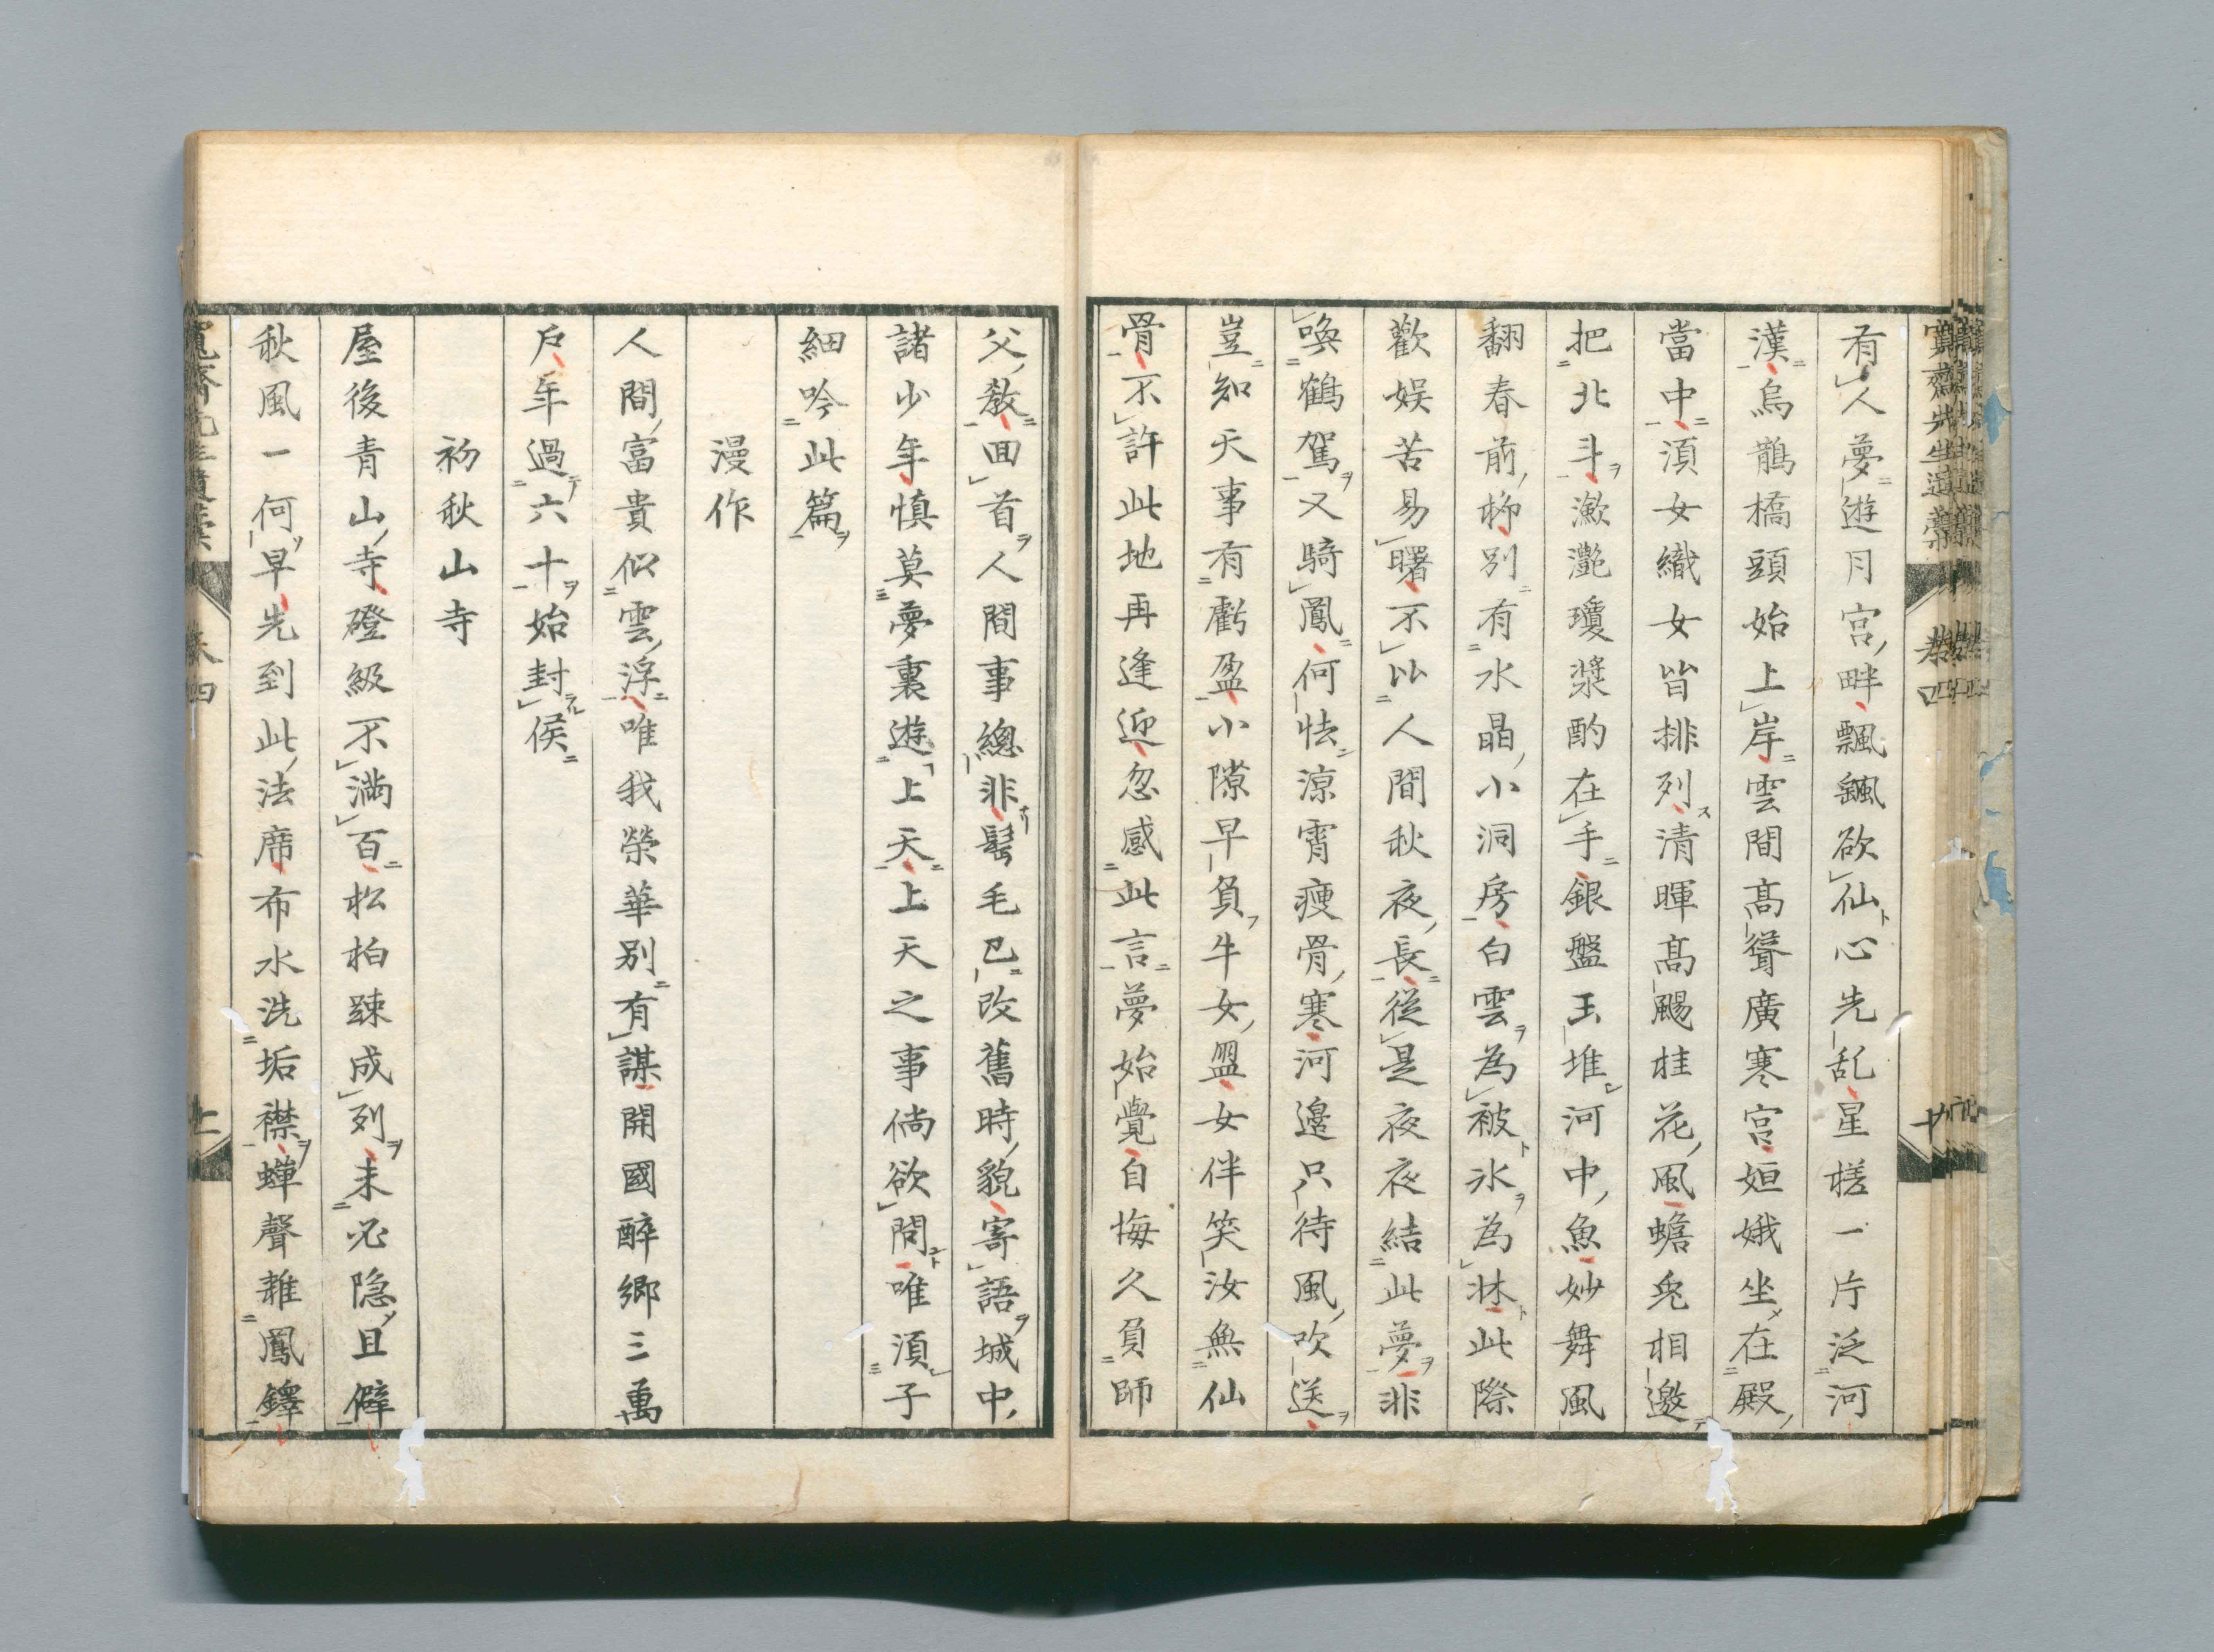 有人夢遊月宮畔飄飖欲仙心先乱星槎一片泛河
漢烏鵲橋頭始上岸雲間高聳廣寒宮姮娥坐在殿
當中須女織女皆排列清暉高颺桂花風蟾兔相邀
把北斗瀲灔瓊漿酌在手銀盤玉堆河中魚妙舞風
翻春前柳別有水晶小洞房白雲為被氷為牀此際
歡娯苦易曙不以人間秋夜長從是夜夜結此夢非
喚鶴駕又騎鳳何怯涼霄瘦骨寒河邊只待風吹送
豈知天事有虧盈小隙早負牛女盟女伴笑汝無仙
骨不許此地再逢迎忽感此言夢始覺自悔久負師
父教回首人間事總非髩毛已改舊時貌寄語城中
諸少年慎莫夢裏遊上天上天之事倘欲問唯須子
細吟此篇
漫作
人間富貴似雲浮唯我榮華別有謀開國醉鄉三萬
戶年過六十始封侯
初秋山寺
屋後青山寺磴級不満百松柏疎成列未必隐且僻
秋風一何早先到此法席布水洗垢襟蟬聲雜鳳鐸
卷四